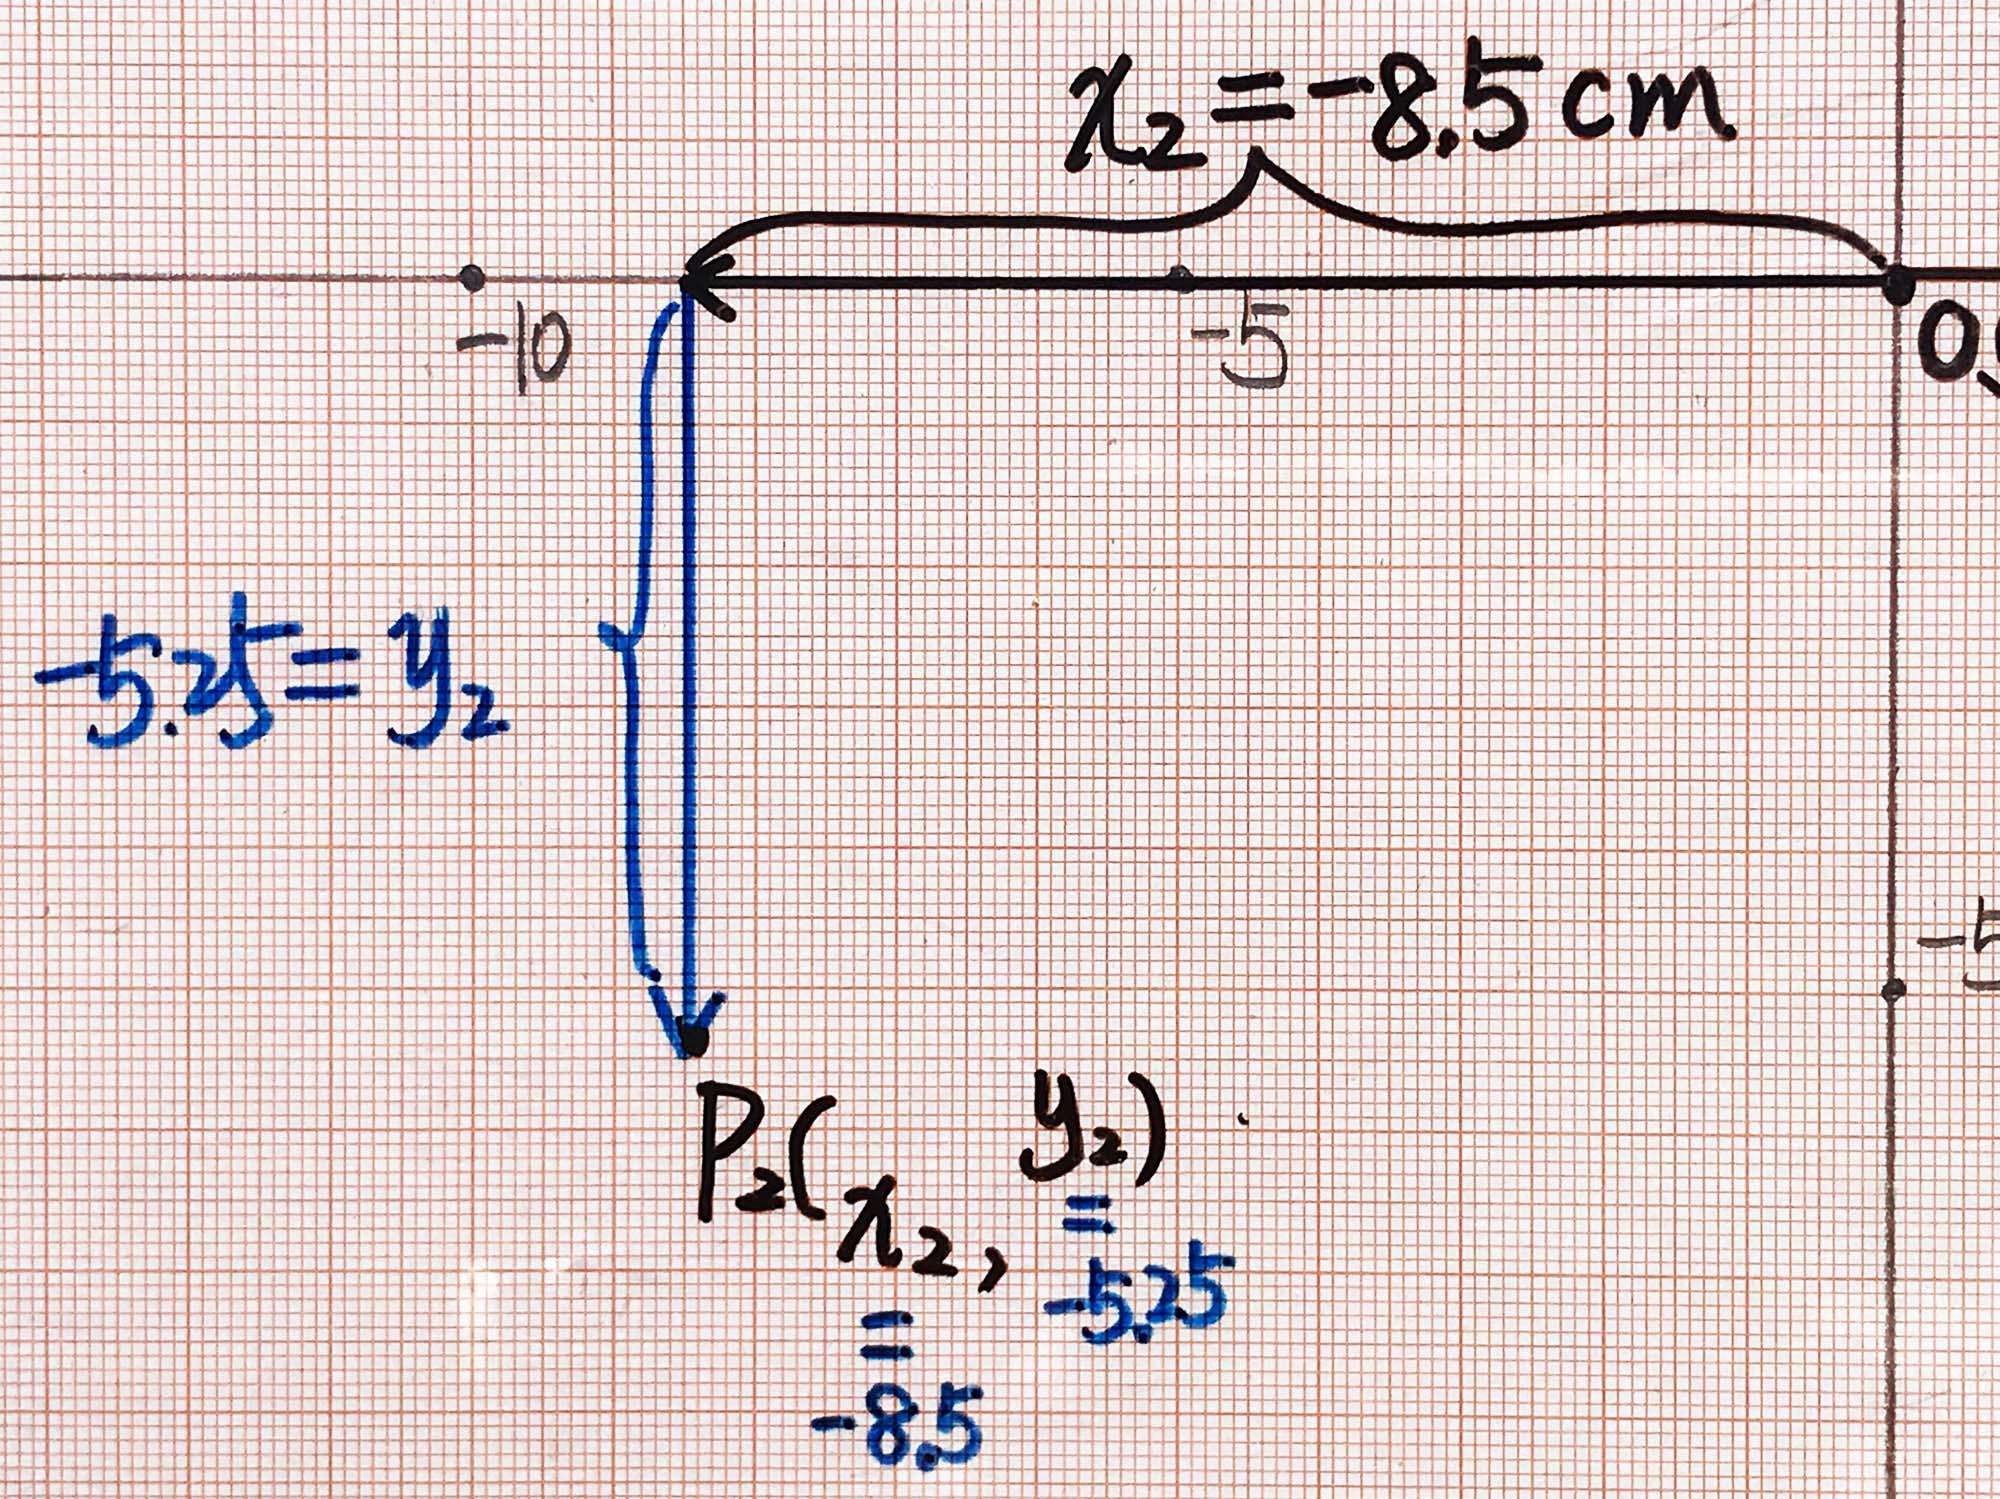 x₂ = -8.5 cm
-10
-5
0
-5.25 = y₂
-5
P₂(x₂, y₂)
= -5.25
= -8.5